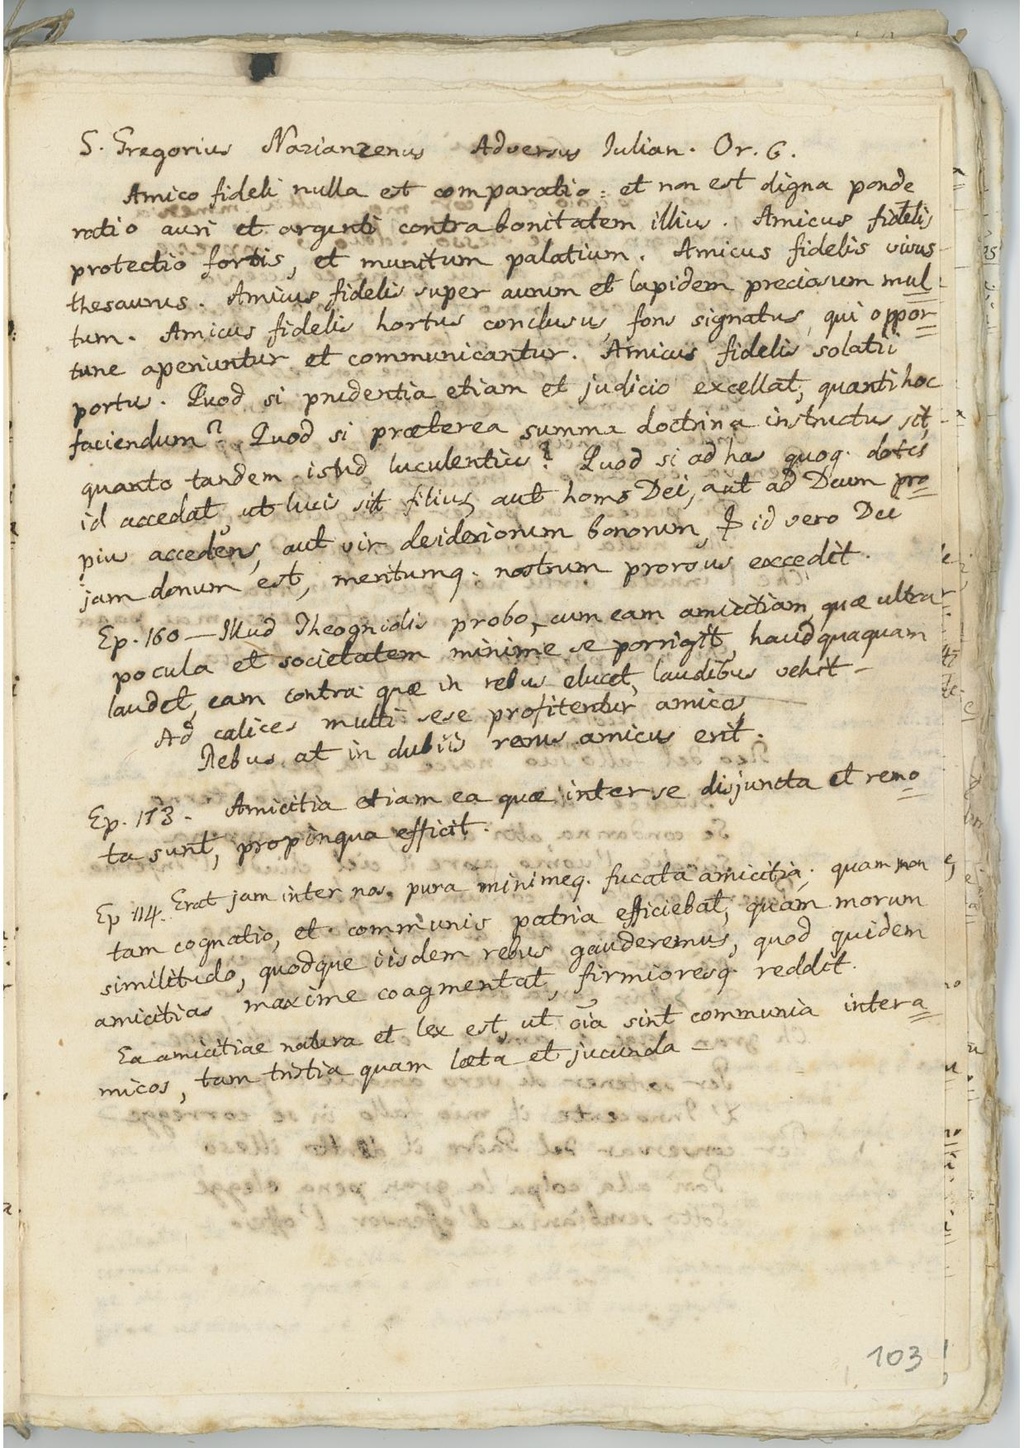 S. Gregorius Nazianzenus Adversus Iulian. Or. 6.
Amico fideli nulla est comparatio: et non est digna ponde
ratio auri et argenti contra bonitatem illius. Amicus fidelis
protectio fortis, et munitum palatium. Amicus fidelis vivus
thesaurus. Amicus fidelis super aurum et lapidem preciosum mul=
tum. Amicus fidelis hortus conclusus, fons signatus, qui oppor=
tune aperiuntur et communicantur. Amicus fidelis solatii
portus. Quod si prudentia etiam et judicio excellat, quanti hoc
faciendum? Quod si præterea summa doctrina instructus sit,
quanto tandem istud luculentius? Quod si ad has quoq. dotes
id accedat, ut lucis sit filius, aut homo Dei, aut ad Deum pro=
pius accedens, aut vir desideriorum bonorum, id vero Dei
jam donum est, meritumq. nostrum prorsus excedit.
Ep. 160 — Illud Theognidis probo, cum eam amicitiam, quæ ultra
pocula et societatem minime se porrigit, haudquaquam
laudet, eam contra quæ in rebus elucet, laudibus vehit —
Ad calices multi sese profitentur amicos,
Rebus at in dubiis rarus amicus erit.
Ep. 173. Amicitia etiam ea quæ inter se disjuncta et remo=
ta sunt, propinqua efficit.
Ep 114. Erat jam inter nos pura minimeq. fucata amicitia; quam non
tam cognatio, et communis patria efficiebat, quam morum
similitudo, quodque iisdem rebus gauderemus, quod quidem
amicitias maxime coagmentat, firmioresq. reddit.
Ea amicitiae natura et lex est, ut oia sint communia inter a=
micos, tam tristia quam læta et jucunda —
103